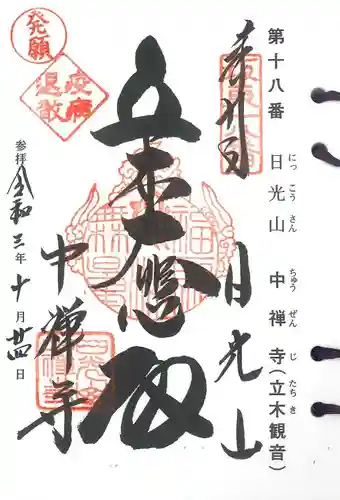 第十八番 日光山 中禅寺(立木観音)
にっこうさん ちゅうぜんじ たちき
奉拝
坂東十八番
日光山
立木大悲殿
中禅寺
発願
疫病退散
参拝 令和三年十月廿四日